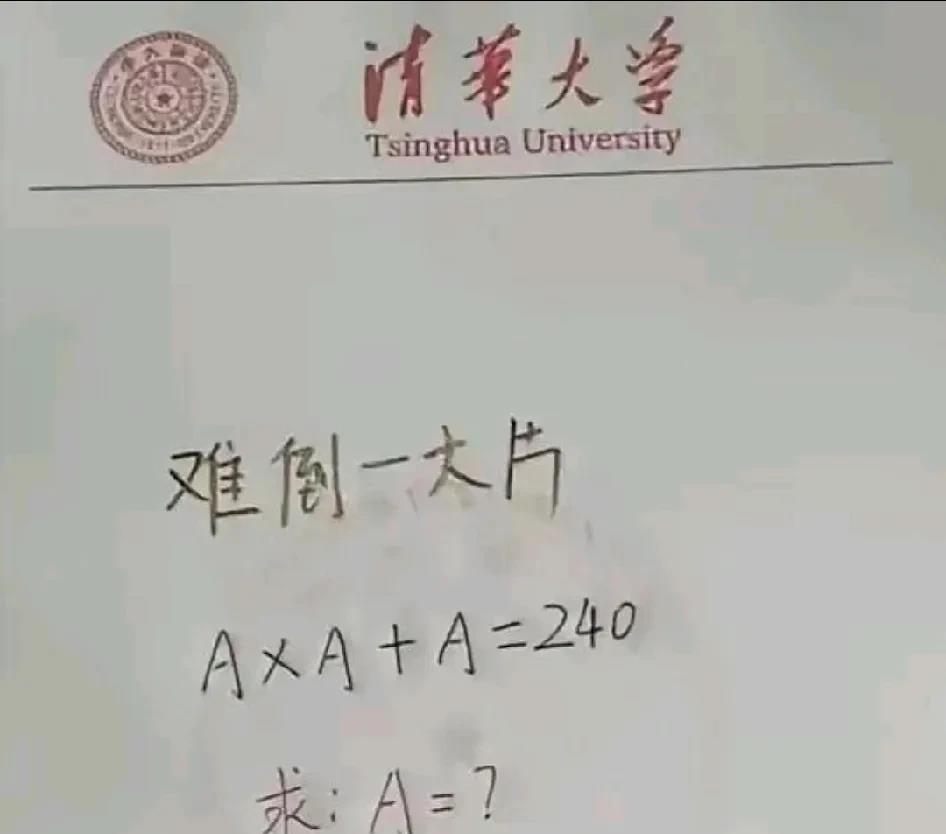 清華大学
Tsinghua University
难倒一大片
A×A+A=240
求:A=?